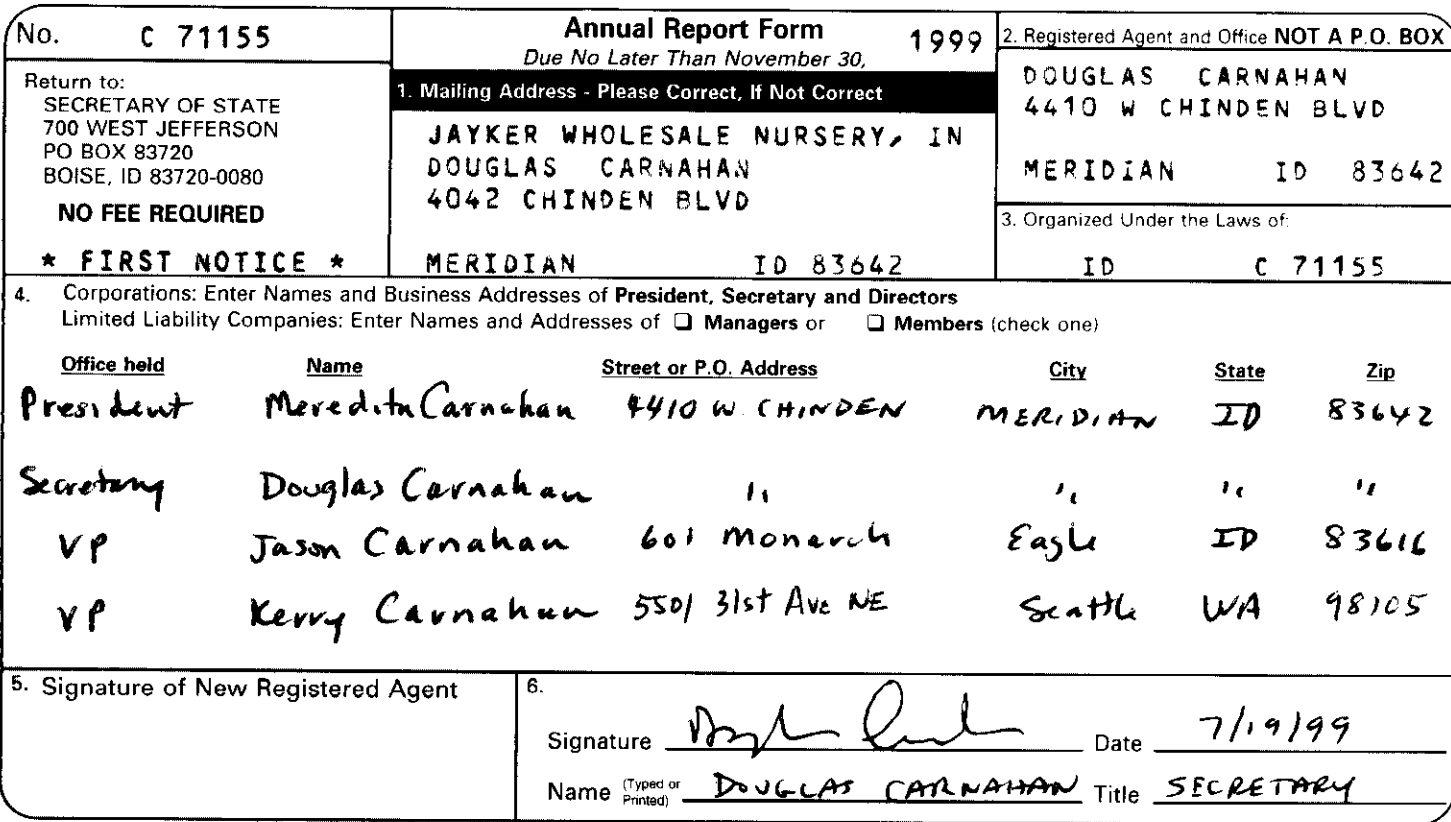 No. C 71155
Return to:
SECRETARY OF STATE
700 WEST JEFFERSON
PO BOX 83720
BOISE, ID 83720-0080
NO FEE REQUIRED
* FIRST NOTICE *
Annual Report Form 1999
Due No Later Than November 30,
1. Mailing Address - Please Correct, If Not Correct
JAYKER WHOLESALE NURSERY, IN
DOUGLAS CARNAHAN
4042 CHINDEN BLVD
MERIDIAN ID 83642
2. Registered Agent and Office NOT A P.O. BOX
DOUGLAS CARNAHAN
4410 W CHINDEN BLVD
MERIDIAN ID 83642
3. Organized Under the Laws of:
ID C 71155
4. Corporations: Enter Names and Business Addresses of President, Secretary and Directors
Limited Liability Companies: Enter Names and Addresses of ☐ Managers or ☐ Members (check one)
Office held Name Street or P.O. Address City State Zip
President Meredith Carnahan 4410 W. CHINDEN MERIDIAN ID 83642
Secretary Douglas Carnahan " " " "
VP Jason Carnahan 601 Monarch Eagle ID 83616
VP Kerry Carnahan 5501 31st Ave NE Seattle WA 98105
5. Signature of New Registered Agent
6.
Signature Date 7/19/99
Name (Typed or Printed) DOUGLAS CARNAHAN Title SECRETARY